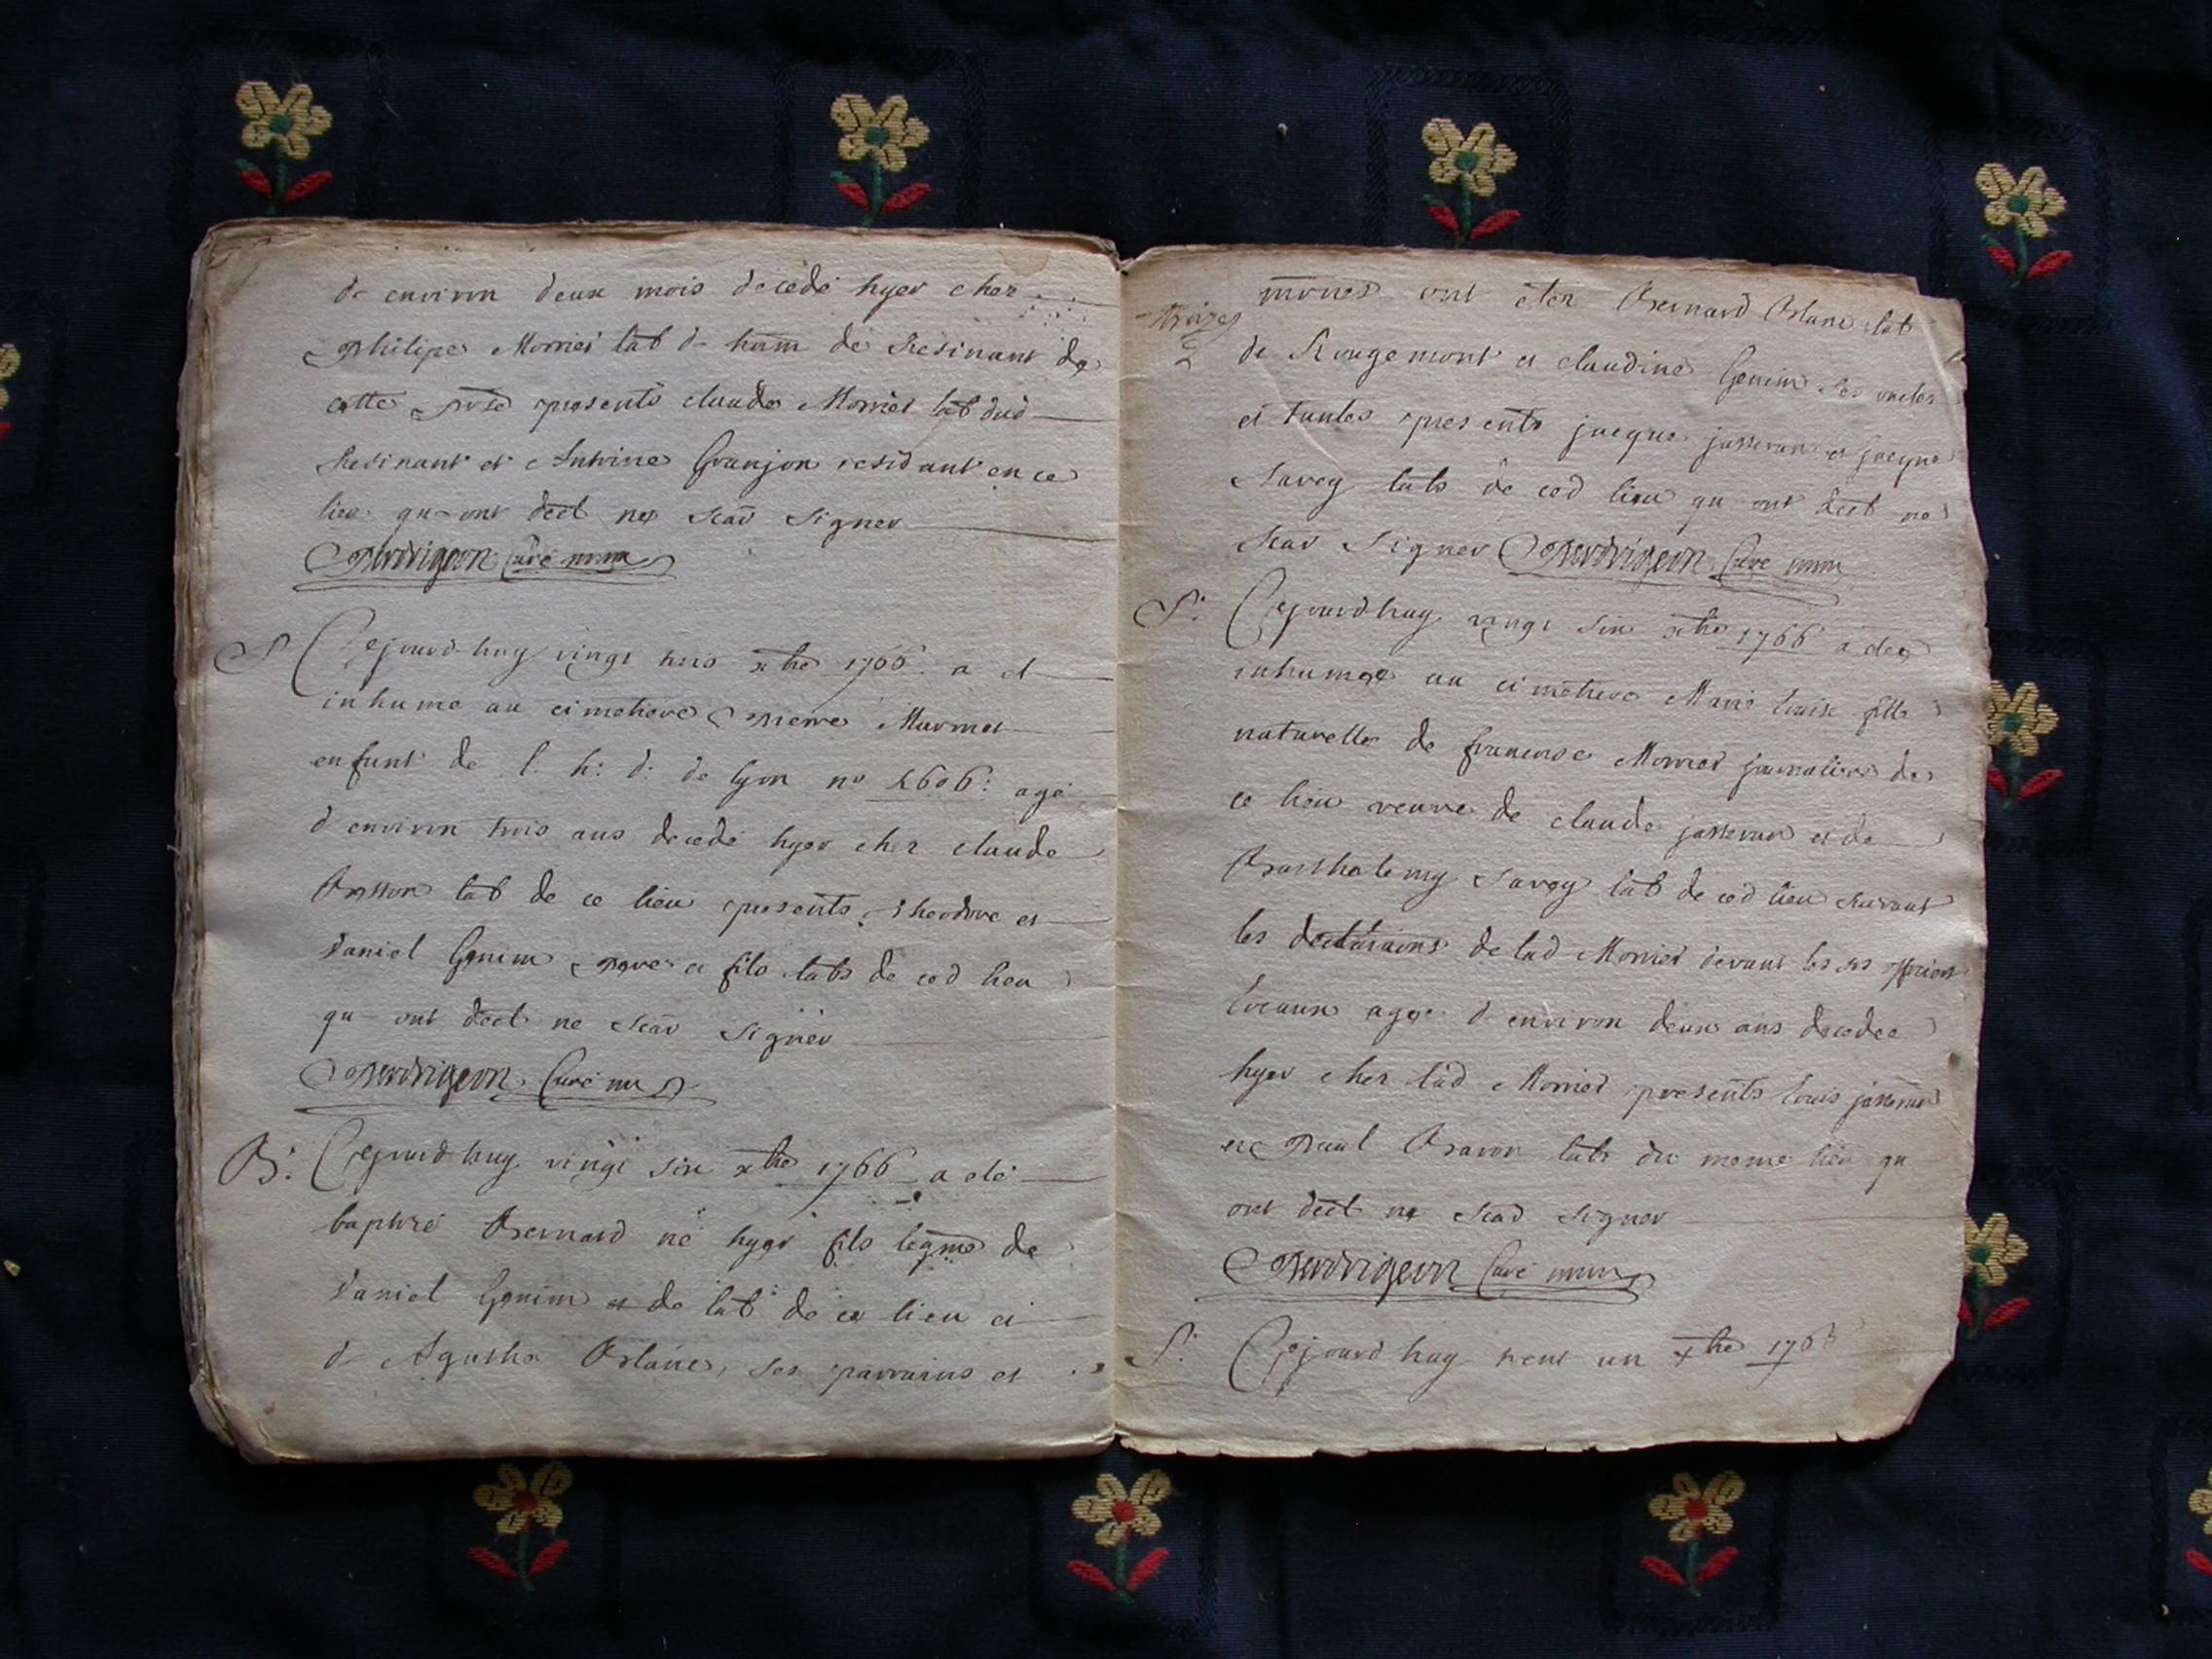 d- environ deux mois decedé hyer chez
philipe Mornet lab d- ham de Resinant de
cette prse presents claude Mornet lab dud
Resinant et Antoine Granjon residant en ce
lieu qu- ont decl ne scav signer
Perdrigeon Curé
S Cejourd-huy vingt trois xbre 1766 a et
inhume au cimetiere pierre Marmet
enfant de l. h: d: de lyon no agé
d environ trois ans decedé hyer chez claude
lab de ce lieu presents theodore et
daniel Gonin pere et fils labs de ced lieu
qu- ont decl ne scav signer
Perdrigeon Curé
B: Cejourd-huy vingt six xbre 1766 a eté
baptisé Bernard né hyer fils legme de
daniel Gonin et de lab de ce lieu et
d- Agathe Blanc, ses parrains et
treize
2
mrnes ont eter Bernard Blanc lab
de Rougemont et claudine Gonin ses oncles
et tantes presents jacque jasseran et jacque
Savey labs de ced lieu qu ont decl ne
scav signer Perdrigeon Curé
S: Cejourd-huy vingt six xbre 1766 a etee
inhumee au cimetiere Marie louise fille
naturelle de francoise Mornet journaliere de
ce lieu veuve de claude jasseran et de
Barthelemy Savey lab de ced lieu suivant
les declarâons de lad Mornet devant les srs officiers
locaux agee d- environ deux ans decedee
hyer chez lad Mornet presents louis jasseran
et paul Bravon labs du meme lieu qu
ont decl ne scav signer
Perdrigeon Curé
S: Cejourd huy trent un xbre 1766